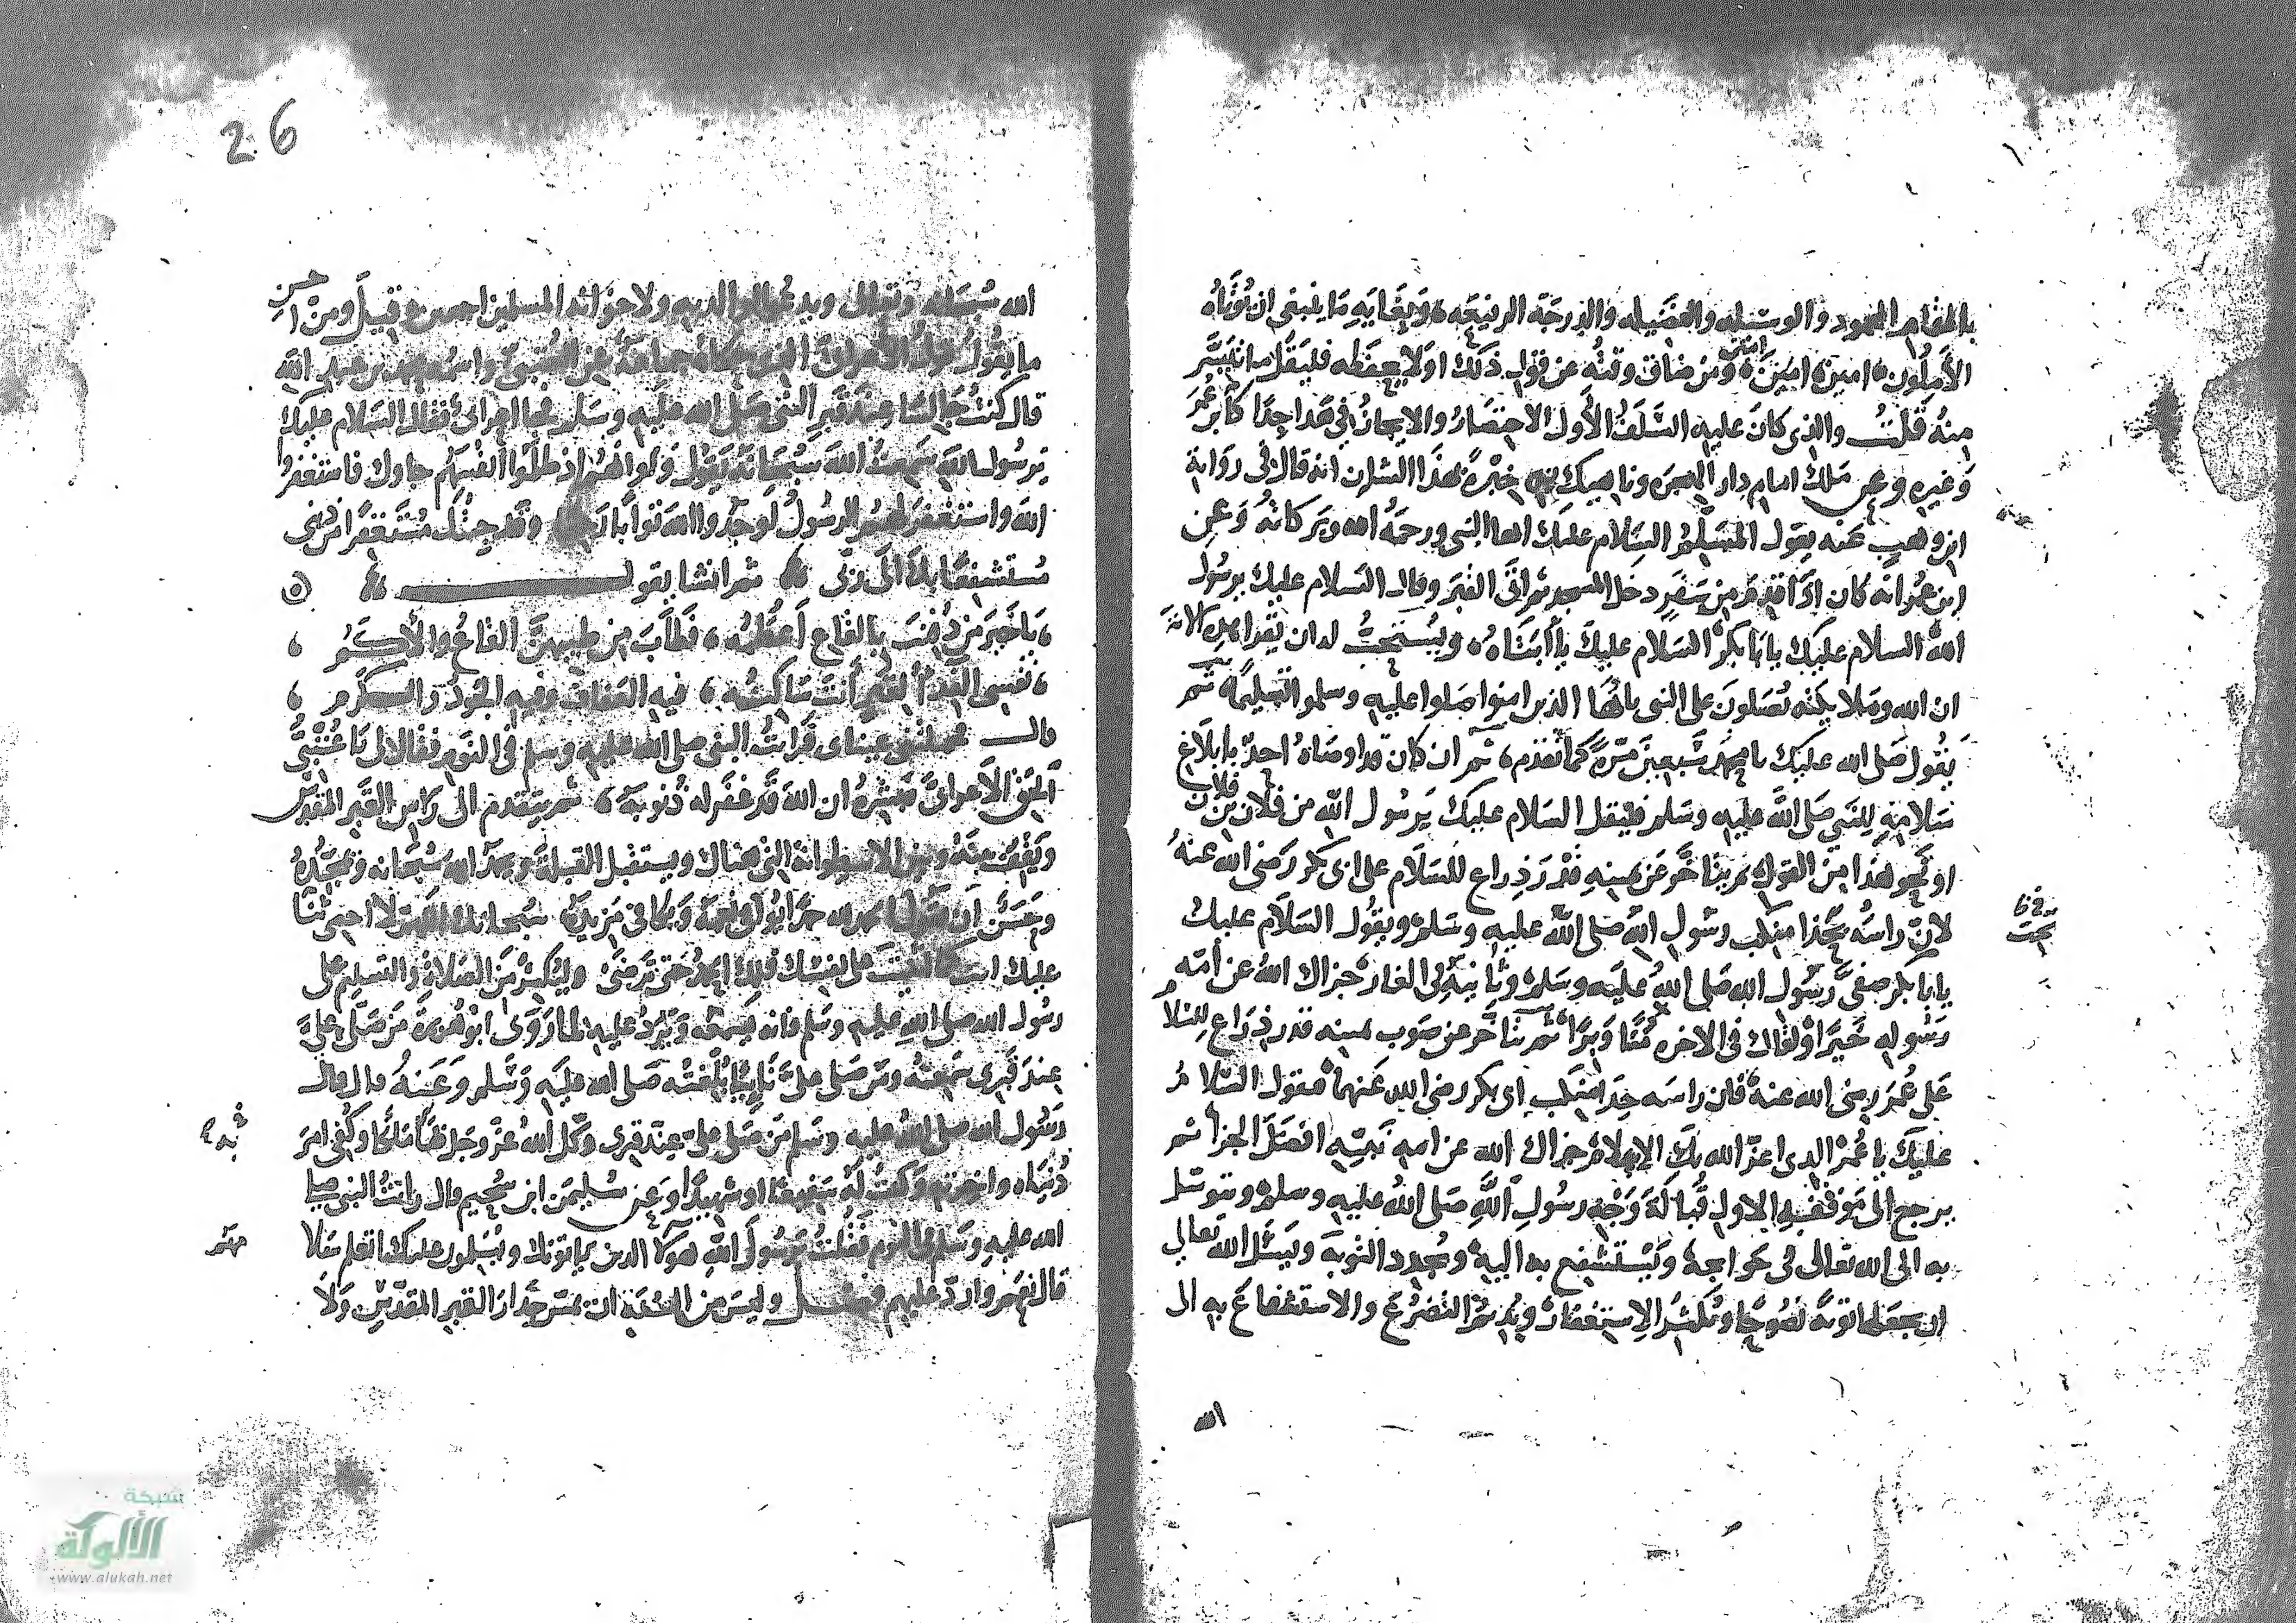 بالمقام المحمود والوسيله والفضيله والدرجة الرفيعه وبغايه ما ينبغي ان يؤتاه
الأملون امين امين امين ومن ضاق وقته عن قول ذلك او لا يحفظه فليقل ما تيسر
منه قلت والذي كان عليه السلف الأول الاختصار والايجاز في هذا جدا كابن عمر
وغيره وعن ملك امام دار الهجره وناهيك به خبرة بهذا الشان انه قال في رواية
ابن وهب عنه يقول المسلم السلام عليك ايها النبي ورحمة الله وبركاته وعن
ابن عمر انه كان اذا قدم من سفر دخل المسجد ثم اتى القبر وقال السلام عليك يرسول
الله السلام عليك يابا بكر السلام عليك يا أبتاه ويستحب له ان يقرا هذه الاية
ان الله وملايكته يصلون على النبي يا ايها الذين امنوا صلوا عليه وسلموا تسليما ثم
يقول صلى الله عليك يا محمد سبعين مرة كما تقدم ثم ان كان قد اوصاه احد بابلاغ
سلامه للنبي صلى الله عليه وسلم فليقل السلام عليك يرسول الله من فلان بن فلان
او نحو هذا من القول ثم يتاخر عن يمينه قدر ذراع للسلام على ابي بكر رضي الله عنه
لان راسه بحذا منكب رسول الله صلى الله عليه وسلم ويقول السلام عليك
يابا بكر صفي رسول الله صلى الله عليه وسلم وثانيه في الغار جزاك الله عن أمة
رسوله خيرا ولقاك في الاخره وبرا ثم يتاخر عن صوب يمينه قدر ذراع للسلام
على عمر رضي الله عنه فان راسه حذا منكب ابي بكر رضي الله عنهما فيقول السلام
عليك يا عمر الذي اعز الله بك الاسلام جزاك الله عن امة نبيه افضل الجزا ثم
يرجع الى موقفه الاول قبالة وجه رسول الله صلى الله عليه وسلم ويتوسل
به الى الله تعالى في حوايجه ويستشفع به اليه ويجدد التوبة ويسئل الله تعالى
ان يجعلها توبة نصوحا ويكثر الاستغفار ويديم التضرع والاستشفاع به الى
الله
26
الله سبحانه وتعالى ويدعو لوالديه ولاخوانه المسلمين اجمعين قيل ومن احسن
ما يقول قول الأعرابي الذي حكاه جماعة عن العتبي واسمه محمد بن عبيد الله
قال كنت جالسا عند قبر النبي صلى الله عليه وسلم فجا اعرابي فقال السلام عليك
يرسول الله سمعت الله سبحانه يقول ولو انهم اذ ظلموا انفسهم جاوك فاستغفروا
الله واستغفر لهم الرسول لوجدوا الله توابا رحيما وقد جئتك مستغفرا من ذنبي
مستشفعا بك الى ربي ثم انشا يقول
يا خير من دفنت بالقاع أعظمه فطاب من طيبهن القاع والأكم
نفسي الفداء لقبر أنت ساكنه فيه العفاف وفيه الجود والكرم
قال فحملتني عيناي فرايت النبي صلى الله عليه وسلم في النوم فقال لي يا عتبي
الحق الأعرابي فبشره ان الله قد غفر له ذنوبه ثم يتقدم الى راس القبر المقدس
ويقف بينه وبين الاسطوانة التي هناك ويستقبل القبلة ويحمد الله سبحانه ويمجده
وحسن أن يقول الحمد لله حمدا يوافي نعمه ويكافي مزيده سبحانك اللهم لا احصي ثنا
عليك انت كما اثنيت على نفسك فلك الحمد حتى ترضى وليكثر من الصلاة والتسليم على
رسول الله صلى الله عليه وسلم فانه يسمعه ويرد عليه لما روى ابو هريرة من صلى علي
عند قبري سمعته ومن صلى علي نايئا بلغته صلى الله عليه وسلم وعنه قال قال
رسول الله صلى الله عليه وسلم من صلى علي عند قبري وكل الله عز وجل بها ملكا وكفي امر
دنياه واخرته وكنت له شفيعا او شهيدا وعن سليمن ابن سحيم قال رايت النبي صلى
الله عليه وسلم في النوم فقلت يرسول الله هولا الذين ياتونك ويسلمون عليك اتعلم سلا
قال نعم وارد عليهم فصل وليس من السنة ان يمس جدار القبر المقدس ولا
شبكة
الألوكة
www.alukah.net